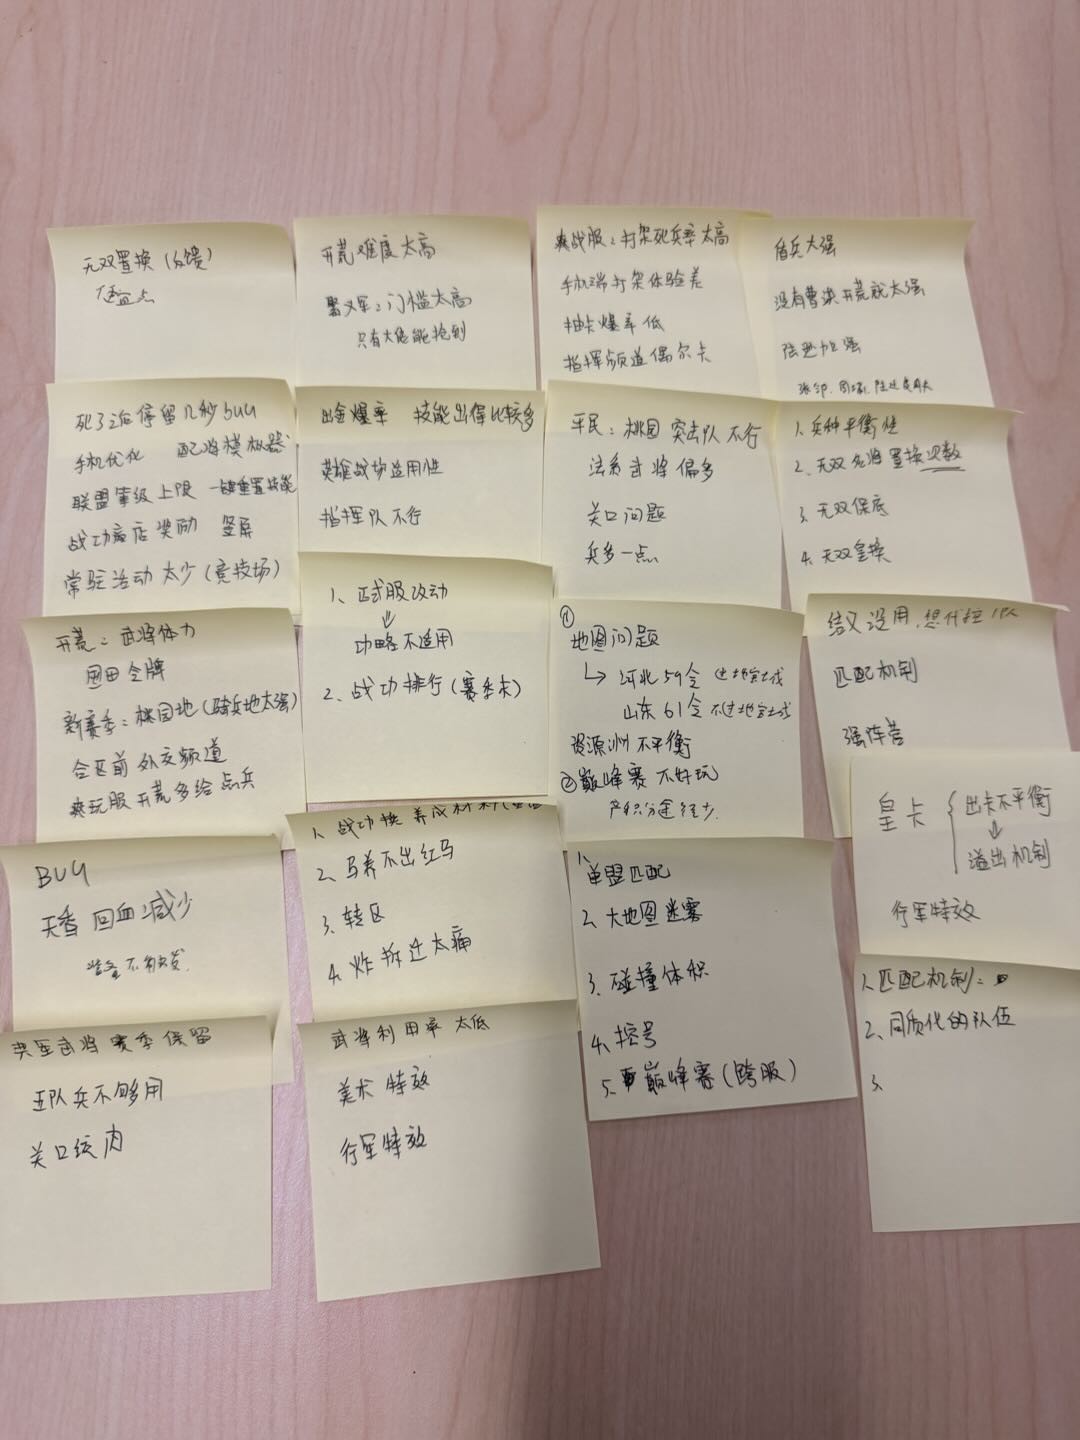 无双置换(反馈)
便宜点
开荒难度太高
聚义军:门槛太高
只有大佬能抢到
爽战服:打架死兵率太高
手机端打架体验差
抽卡爆率低
指挥频道偶尔卡
盾兵太强
没有曹洪开荒就太强
陆逊加强
死了之后停留几秒BUG
手机优化 配将模拟器
联盟等级上限 一键重置技能
战功商店奖励 竖屏
常驻活动太少(竞技场)
出金爆率 技能出得比较多
英雄战场适用性
指挥队不行
平民:桃园 突击队 不行
法系武将偏多
关口问题
兵多一点
1、兵种平衡性
2、无双名将置换次数
3、无双保底
4、无双皇换
开荒:武将体力
屯田令牌
新赛季:桃园地(骑兵地太强)
合区前 外交频道
爽玩服开荒多给点兵
1、正式服改动
⇓
功略不适用
2、战功排行(赛季末)
①
地图问题
↳ 河北59令
山东61令
资源洲不平衡
②巅峰赛不好玩
积分途径少
结义没用,想代拉
匹配机制
强阵营
皇卡 { 出卡不平衡
⇓
溢出机制
行军特效
BUG
天香回血减少
1、战功换养成材料
2、马养不出红马
3、转区
4、炸拆迁太痛
1、单盟匹配
2、大地图迷雾
3、碰撞体积
4、控号
5、巅峰赛(跨服)
1、匹配机制:
2、同质化的队伍
3、
武将赛季保留
五队兵不够用
关口绞肉
武将利用率太低
美术特效
行军特效